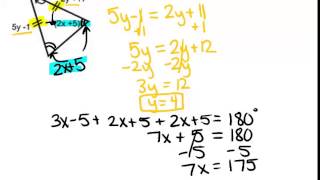 5y-1
(2x+5)
2x+5
5y-1 = 2y+11
+1 +1
5y = 2y+12
-2y -2y
3y = 12
y = 4
3x-5 + 2x+5 + 2x+5 = 180°
7x + 5 = 180
-5 -5
7x = 175